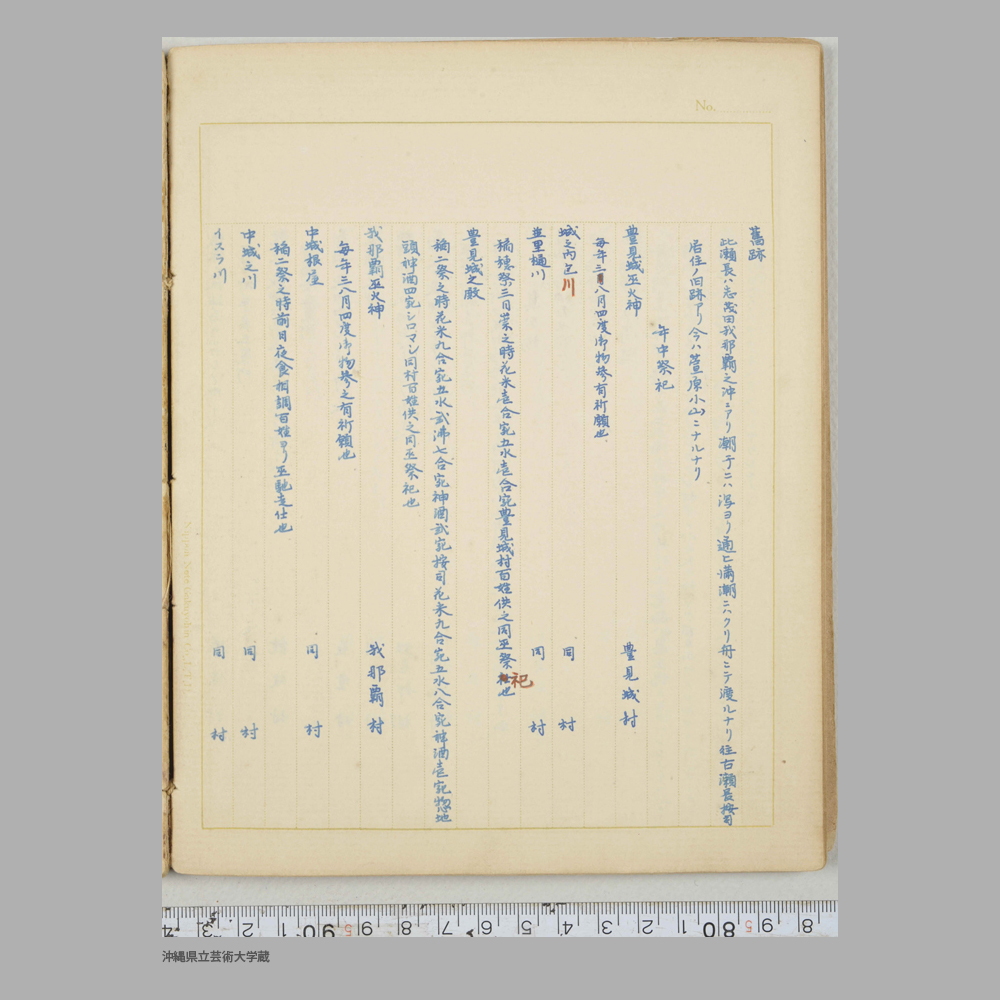 No.
舊跡
此瀬長ハ志茂田我那覇之沖ニアリ潮干ニハ潟ヨリ通ヒ満潮ニハクリ舟ニテ渡ルナリ往古瀬長按司
居住ノ旧跡アリ今ハ萱原小山ニナルナリ
年中祭祀
豊見城巫火神 豊見城村
毎年三八月四度御物参有祈願也
城之内之川 同村
並里樋川 同村
稲穂祭三日崇之時花米壱合宛五水壱合宛豊見城村百姓供之同巫祭祀也
豊見城之殿
稲二祭之時花米九合宛五水貳沸七合宛神酒貳宛按司花米九合宛五水八合宛神酒壱宛惣地
頭神酒四宛シロマシ同村百姓供之同巫祭祀也
我那覇巫火神 我那覇村
毎年三八月四度御物参之有祈願也
中城根屋 同村
稲二祭之時前日夜食相調百姓ヨリ巫馳走仕也
中城之川 同村
イスラ川 同村
沖縄県立芸術大学蔵